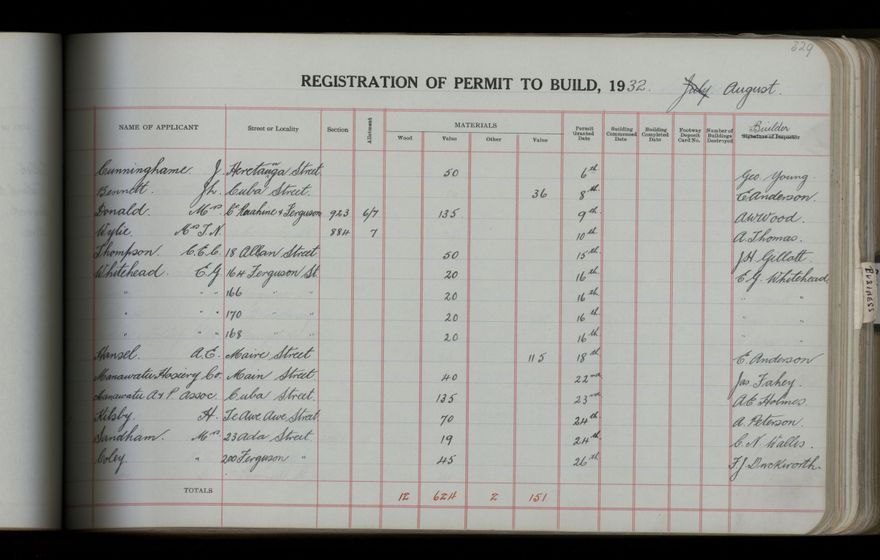 329
REGISTRATION OF PERMIT TO BUILD, 1932. July August.
NAME OF APPLICANT Street or Locality Section Allotment MATERIALS Wood Value Other Value Permit Granted Date Building Commenced Date Building Completed Date Footway Deposit Card No. Number of Buildings Destroyed Builder Signature of Inspector
Cunninghame. J. Heretaunga Street 50 6th Geo Young.
Bennett. Cuba Street. 36 8th E Anderson.
Donald. Mrs Cr Ruahine & Ferguson 923 6/7 135 9th AW Wood.
Wylie. Mrs T.N. 884 7 10th A. Thomas.
Thompson. C.E.C. 18 Allan Street 50 15th J.H. Gillott.
Whitehead. E.G. 164 Ferguson St 20 16th E.G. Whitehead.
" " " 166 " " 20 16th " "
" " " 170 " " 20 16th " "
" " " 168 " " 20 16th " "
Hansel. A.E. Maire Street 115 18th E. Anderson
Manawatu Hosiery Co. Main Street. 40 22nd Jas Fahey.
Manawatu A & P Assoc. Cuba Street. 135 23rd A E Holmes
Kilsby. H. Te Awe Awe Street 70 24th A. Peterson.
Sandham. Mrs 23 Ada Street. 19 24th C. N. Walles.
Coley. " 200 Ferguson " 45 26th F J Duckworth.
TOTALS 12 624 2 151
BUSINESS